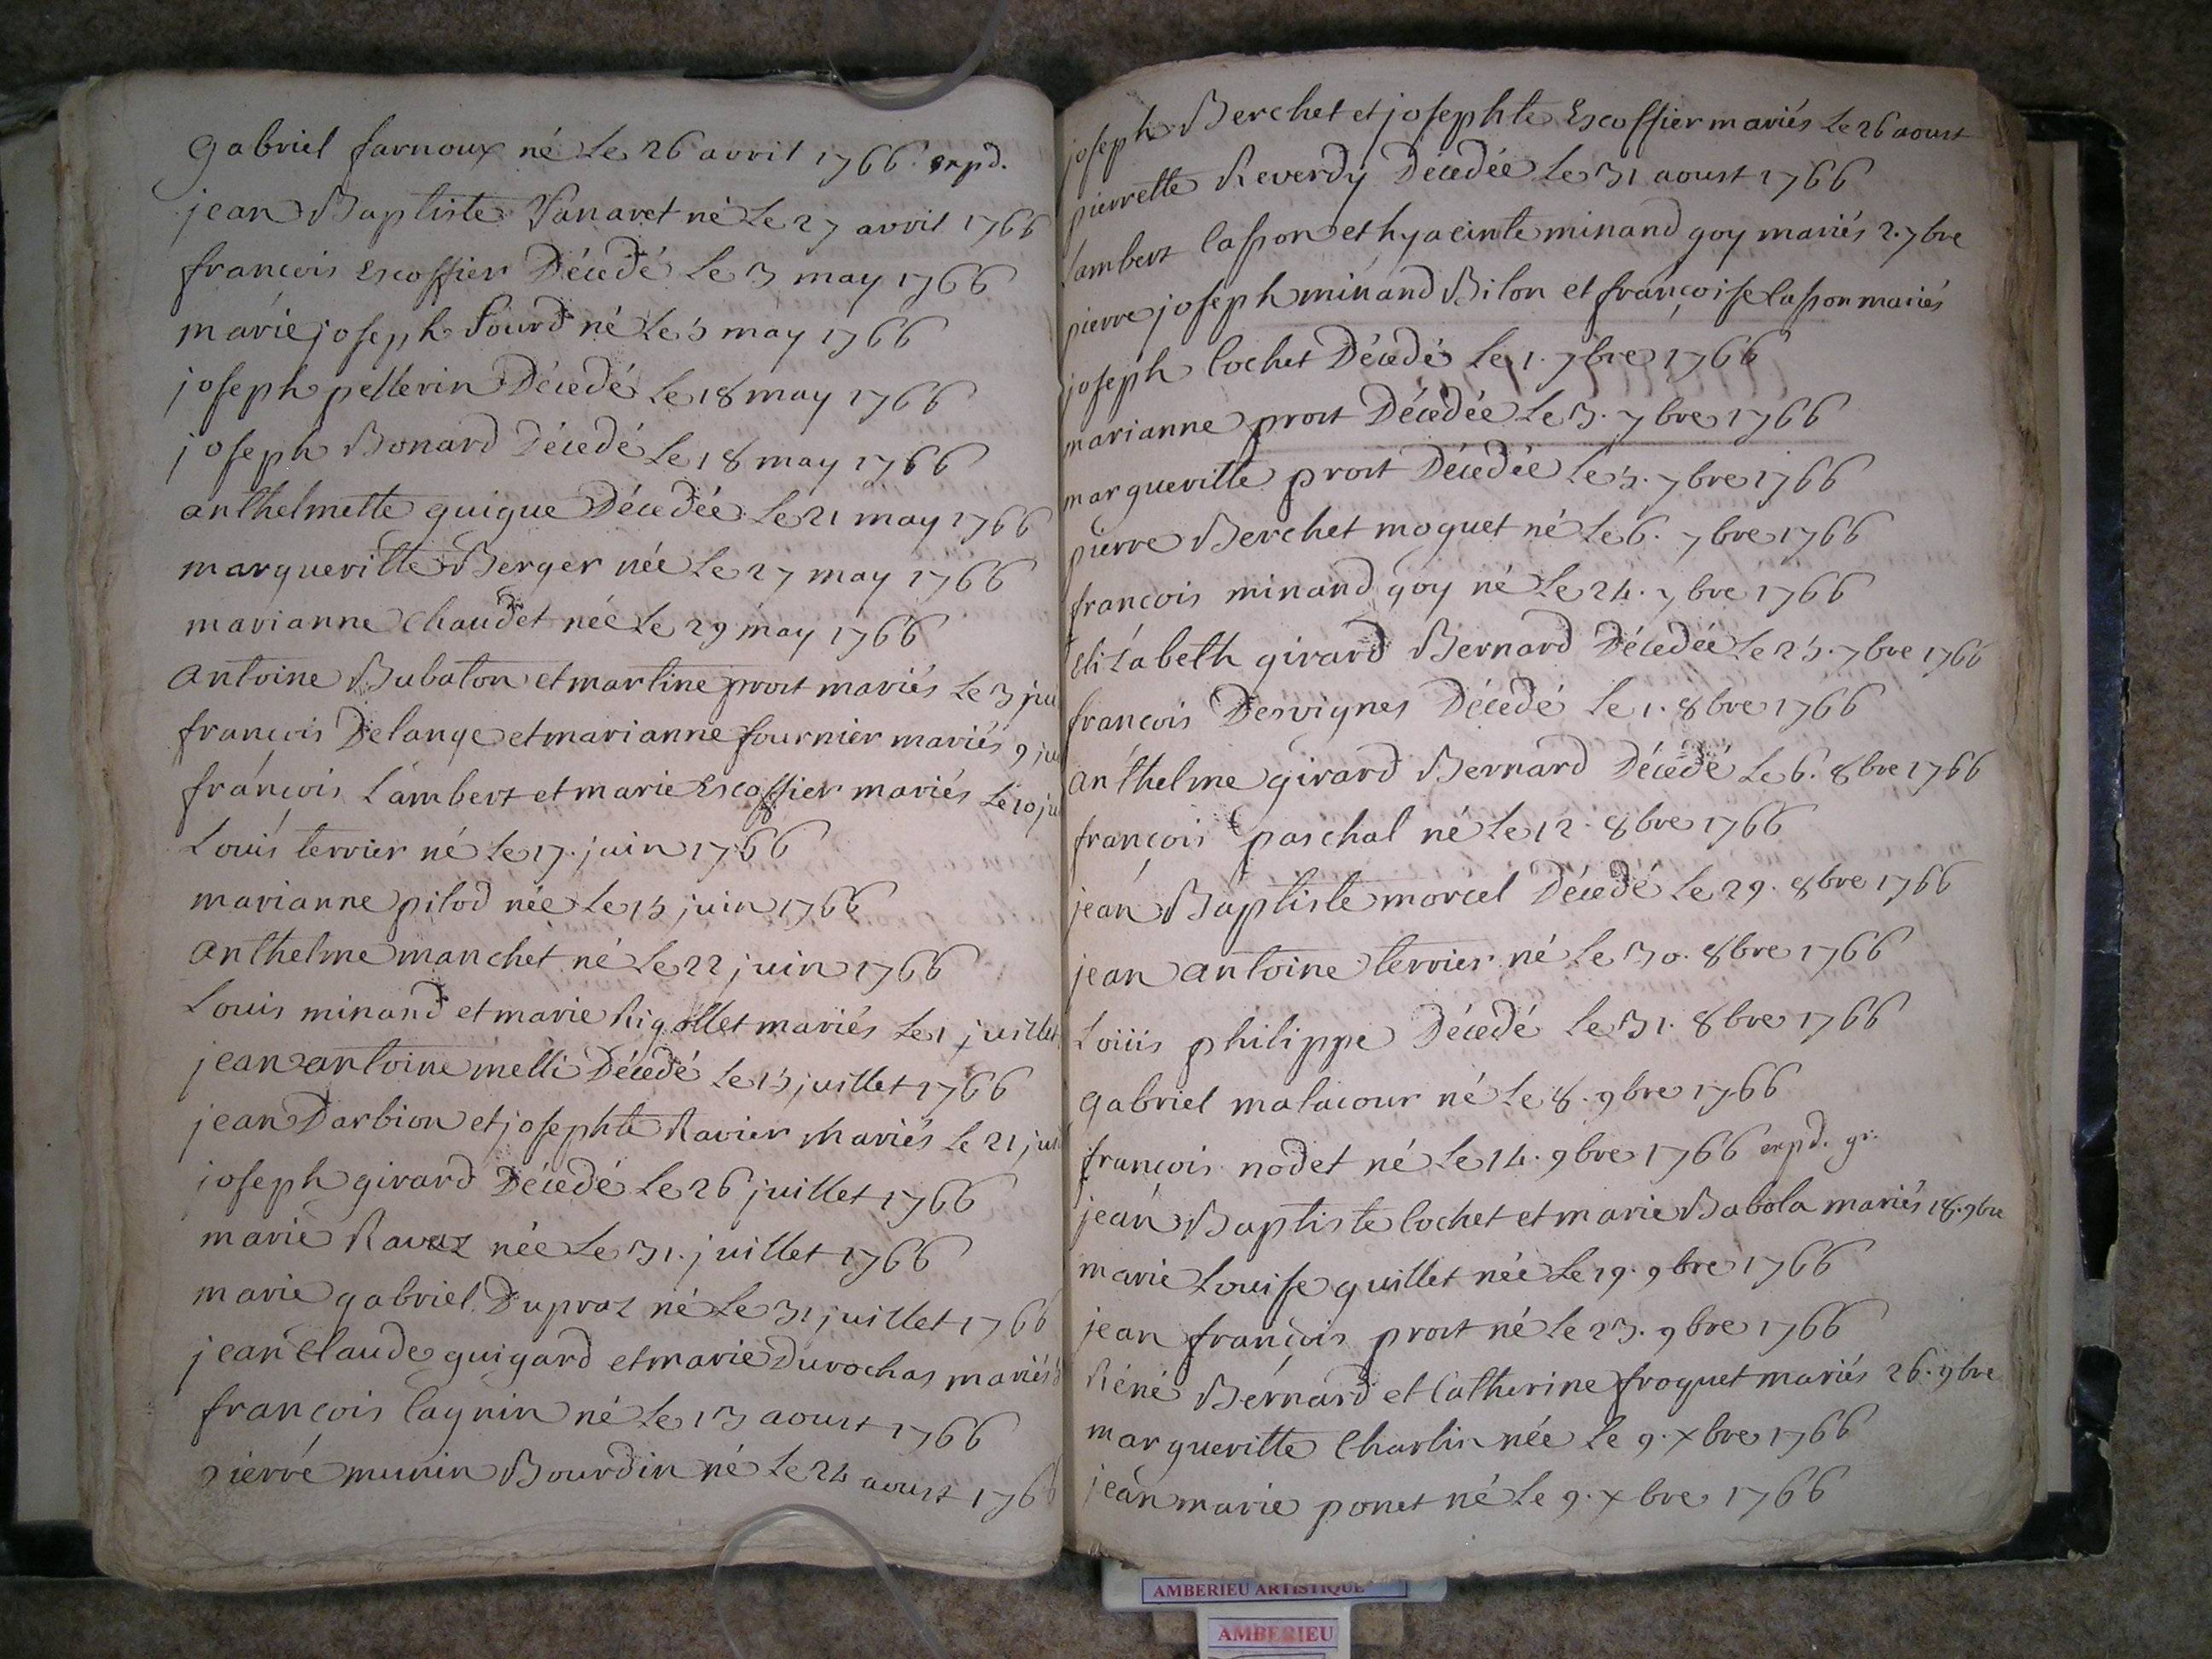 Gabriel farnoux né Le 26 avril 1766. expd.
jean Baptiste Vanaret né Le 27 avril 1766
françois Escoffier Décedé Le 3 may 1766
marie joseph Sourd né Le 5 may 1766
joseph pellerin Décedé Le 18 may 1766
joseph Bonard Décedé Le 18 may 1766
anthelmette guigue Décedée Le 21 may 1766
margueritte Berger née Le 27 may 1766
marianne Chaudet née Le 29 may 1766
antoine Bubaton et martine prost mariés Le 3 ju
françois Delange et marianne fournier mariés 9 ju
françois Lambert et marie Escoffier mariés Le 10 ju
Louis terrier né Le 17. juin 1766
marianne pilod née Le 15 juin 1766
anthelme manchet né Le 22 juin 1766
Louis minand et marie Rigollet mariés Le 1 juillet
jean antoine melli Décedé Le 15 juillet 1766
jean Darbion et josephte Ravier mariés Le 21 jui
joseph girard Décedé Le 26 juillet 1766
marie Ravaz née Le 31. juillet 1766
marie gabriel Dupraz né Le 31 juillet 1766
jean Claude guigard et marie Durochas mariés
françois Cagnin né Le 13 aoust 1766
pierre munin Bourdin né Le 24 aoust 1766
joseph Berchet et josephte Escoffier mariés Le 26 aoust
pierrette Reverdy Décedée Le 31 aoust 1766
Lambert Casson et hyacinte minand goy mariés 2. 7bre
pierre joseph minand Bilon et françoise Casson mariés
joseph Cochet Décedé Le 1. 7bre 1766
marianne prost Décedée Le 3. 7bre 1766
margueritte prost Décedée Le 5. 7bre 1766
pierre Berchet moquet né Le 6. 7bre 1766
françois minand goy né Le 24. 7bre 1766
Elizabeth girard Bernard Décedée Le 25. 7bre 1766
françois Desvignes Décedé Le 1. 8bre 1766
anthelme girard Bernard Décedé Le 6. 8bre 1766
françois paschal né Le 12. 8bre 1766
jean Baptiste morcel Décedé Le 29. 8bre 1766
jean antoine terrier né Le 30. 8bre 1766
Louis philippe Décedé Le 31. 8bre 1766
Gabriel malacour né Le 8. 9bre 1766
françois nodet né Le 14. 9bre 1766 expd. gr.
jean Baptiste Cochet et marie Babola mariés 18. 9bre
marie Louise guillet née Le 19. 9bre 1766
jean françois prost né Le 23. 9bre 1766
Réné Bernard et Catherine froquet mariés 26. 9bre
margueritte Charlin née Le 9. Xbre 1766
jean marie ponet né Le 9. Xbre 1766
AMBERIEU ARTISTIQUE
AMBERIEU